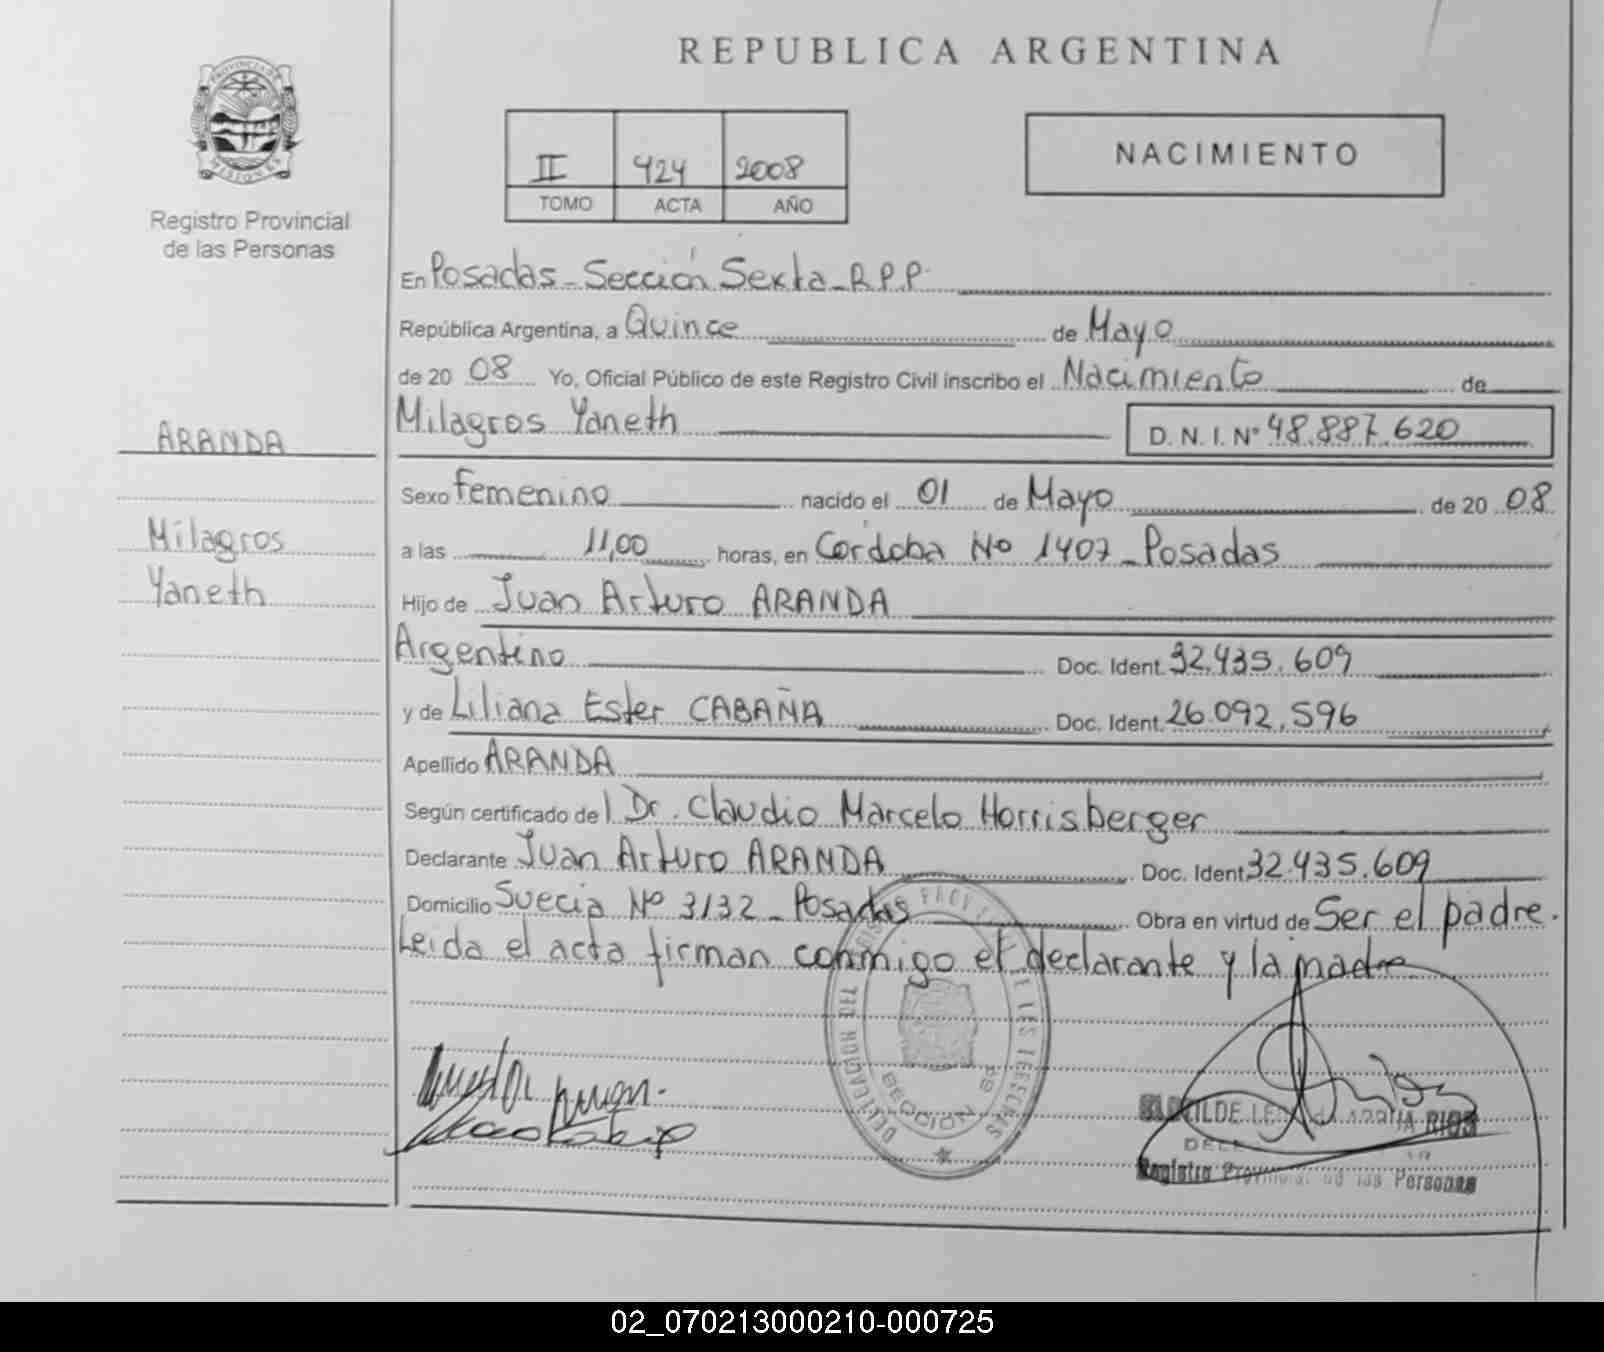 REPUBLICA ARGENTINA
PROVINCIA DE
MISIONES
Registro Provincial
de las Personas
II 424 2008
TOMO ACTA AÑO
NACIMIENTO
ARANDA
Milagros
Yaneth
En Posadas - Sección Sexta - R.P.P.
República Argentina, a Quince de Mayo
de 20 08 Yo, Oficial Público de este Registro Civil inscribo el Nacimiento de
Milagros Yaneth D. N. I. N° 48.887.620
Sexo Femenino nacido el 01 de Mayo de 20 08
a las 11,00 horas, en Córdoba No 1407 - Posadas
Hijo de Juan Arturo ARANDA
Argentino Doc. Ident. 32.435.609
y de Liliana Ester CABAÑA Doc. Ident. 26.092.596
Apellido ARANDA
Según certificado de l Dr. Claudio Marcelo Horrisberger
Declarante Juan Arturo ARANDA Doc. Ident. 32.435.609
Domicilio Suecia No 3132 - Posadas Obra en virtud de Ser el padre.
Leida el acta firman conmigo el declarante y la madre
SECCION
RIOS
Registro Provincial de las Personas
02_070213000210-000725